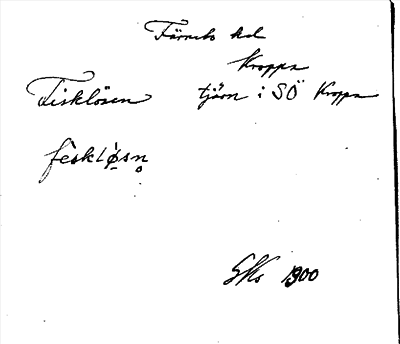 Färnebo hd
Kroppa
Fisklösen tjärn i SÖ Kroppa
fèsklø̀sn̥
SKs 1900